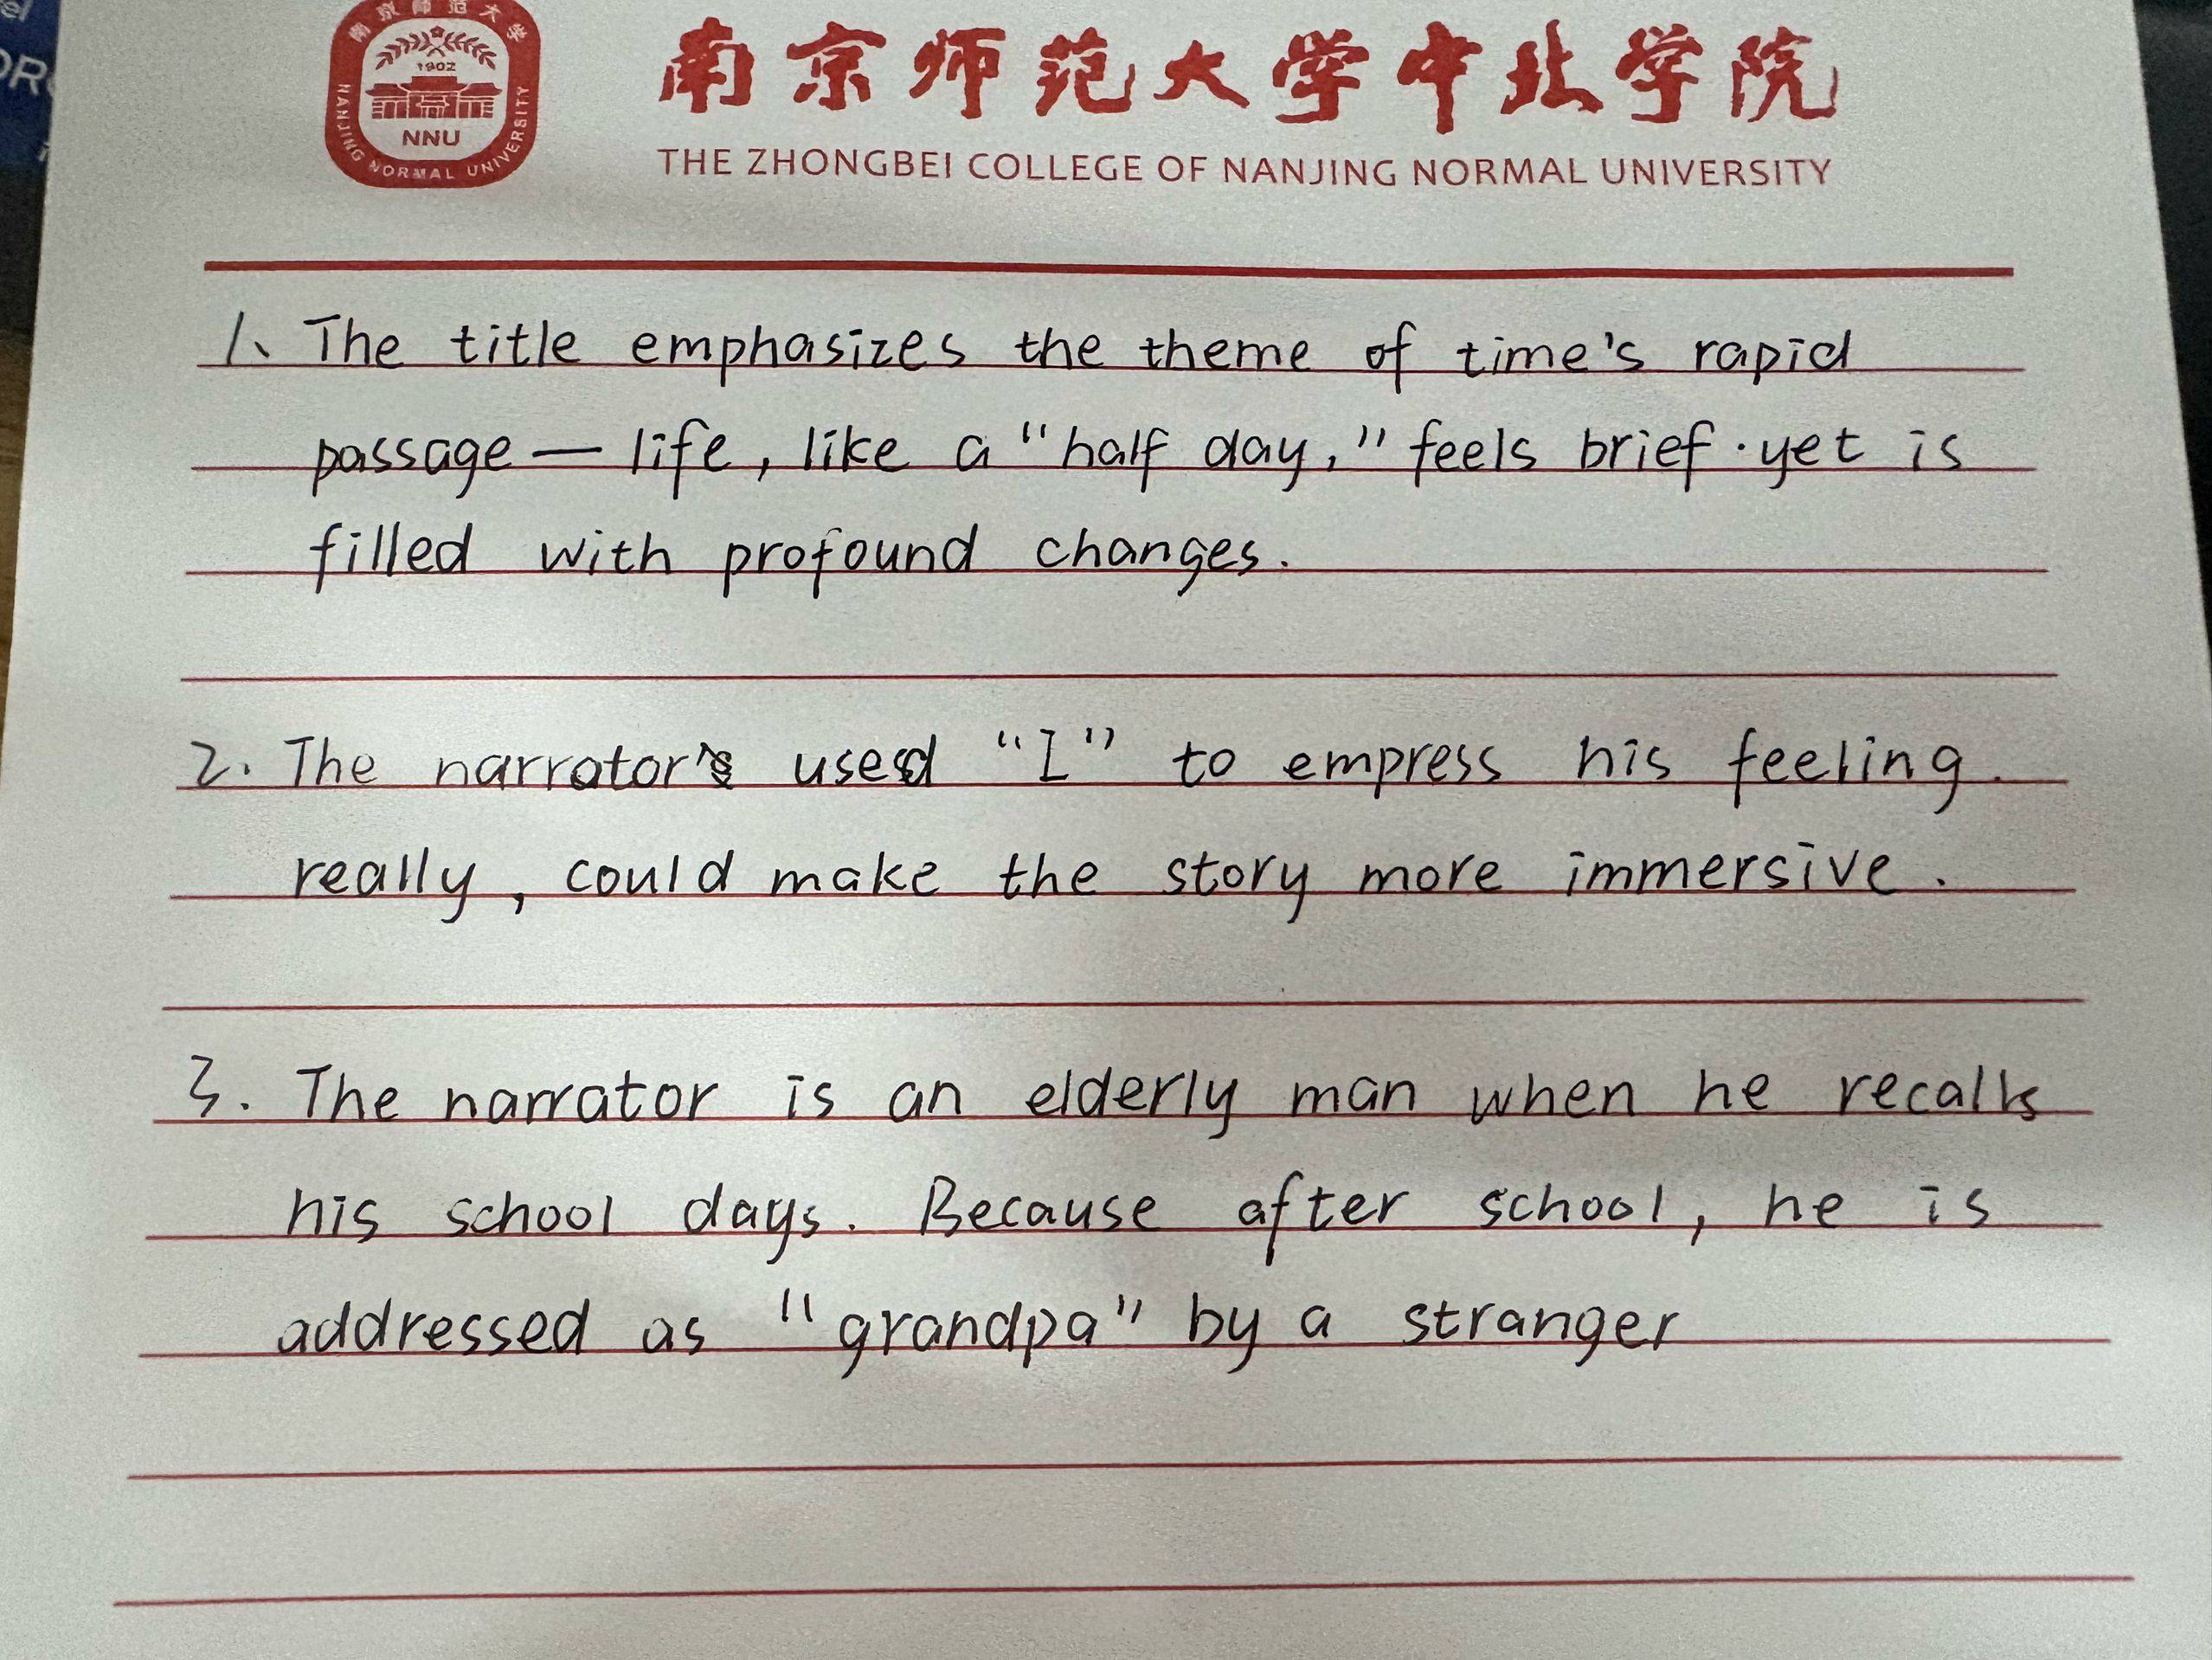 南京师范大学
1902
NNU
NANJING NORMAL UNIVERSITY
南京师范大学中北学院
THE ZHONGBEI COLLEGE OF NANJING NORMAL UNIVERSITY
1、The title emphasizes the theme of time's rapid
passage — life, like a "half day," feels brief · yet is
filled with profound changes.
2. The narrator's used "I" to empress his feeling
really, could make the story more immersive.
3. The narrator is an elderly man when he recalls
his school days. Because after school, he is
addressed as "grandpa" by a stranger